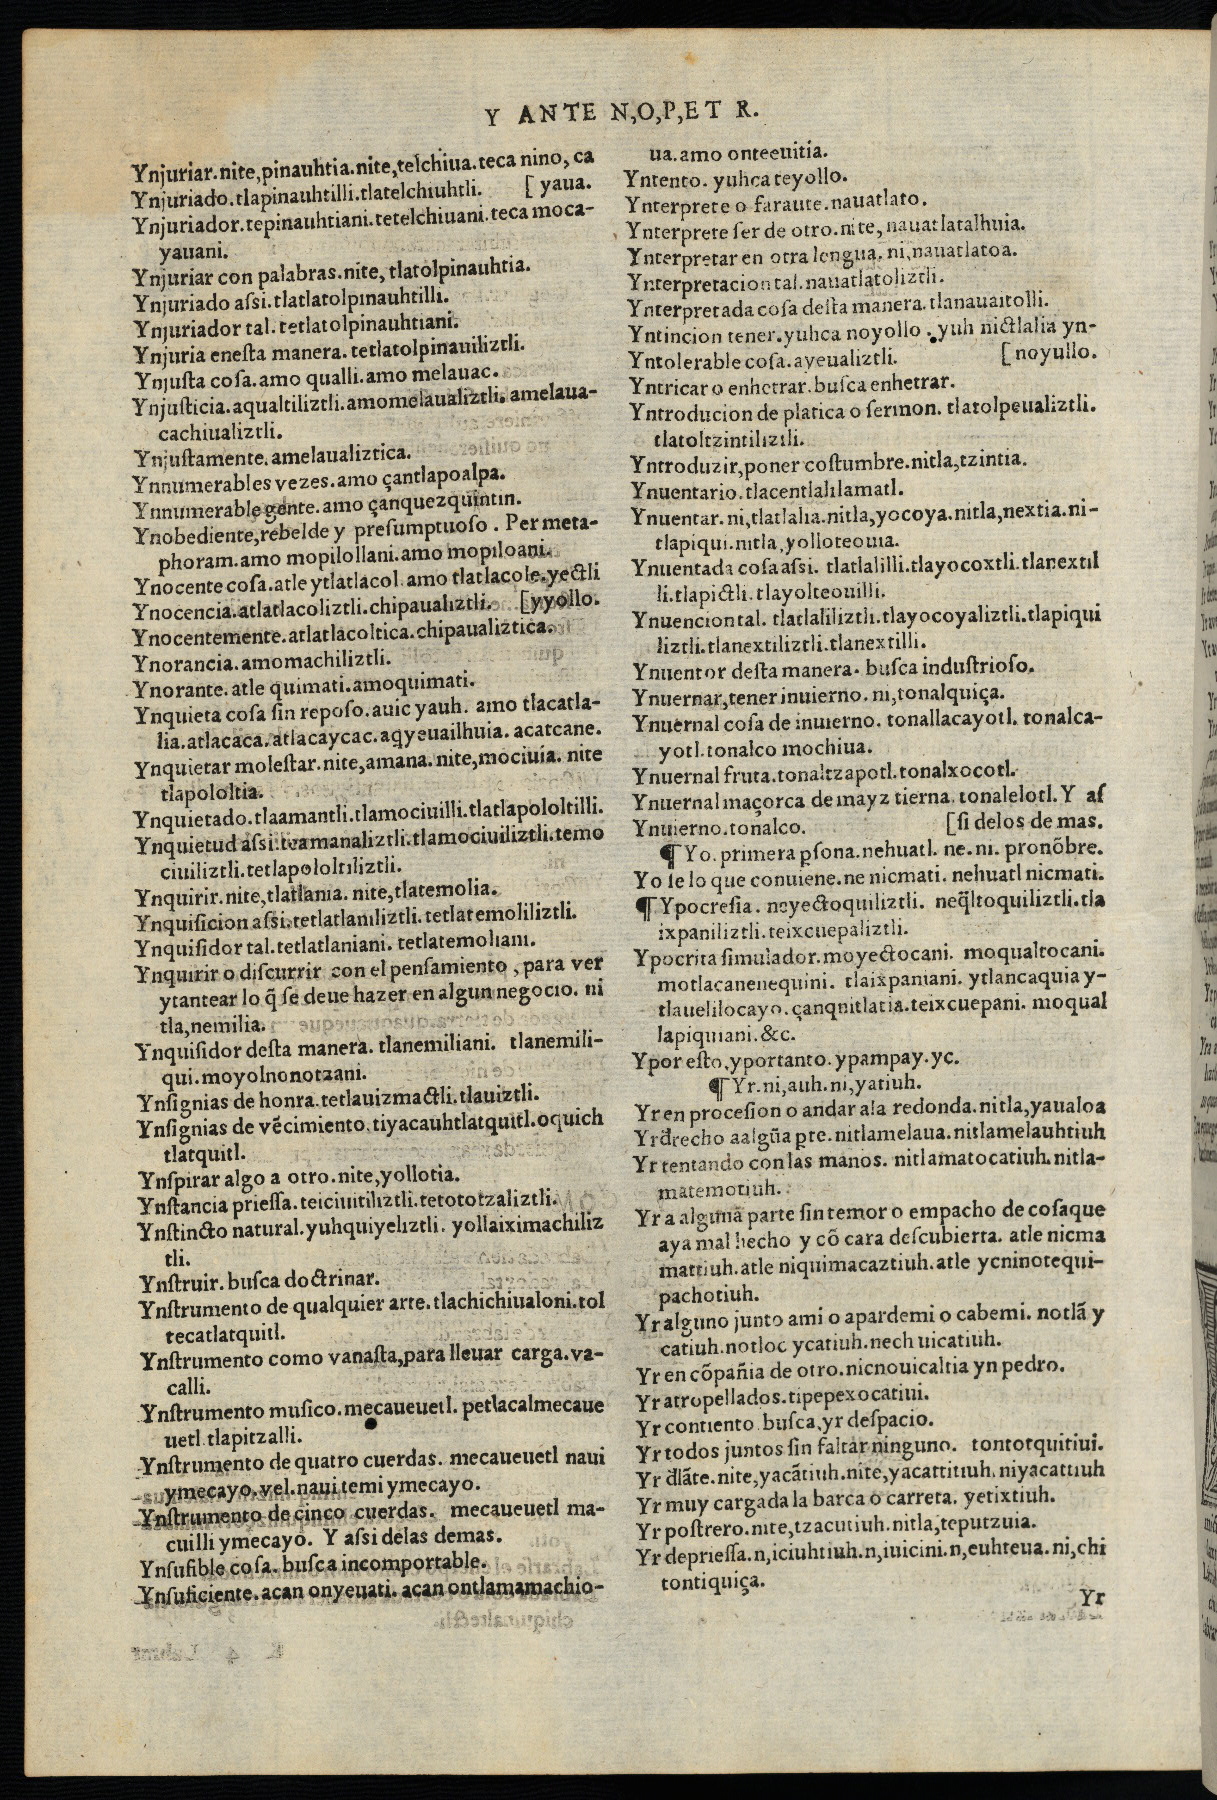 Y ANTE N,O,P,ET R.
Ynjuriar.nite,pinauhtia.nite,telchiua.teca nino, ca
Ynjuriado.tlapinauhtilli.tlatelchiuhtli. [yaua.
Ynjuriador.tepinauhtiani.tetelchiuani.teca moca-
yauani.
Ynjuriar con palabras.nite, tlatolpinauhtia.
Ynjuriado aſsi.tlatlatolpinauhtilli.
Ynjuriador tal.tetlatolpinauhtiani.
Ynjuria eneſta manera. tetlatolpinauiliztli.
Ynjuſta coſa.amo qualli.amo melauac.
Ynjuſticia.aqualtiliztli.amomelaualiztli.amelaua-
cachiualiztli.
Ynjuſtamente.amelaualiztica.
Ynnumerables vezes.amo çantlapoalpa.
Ynnumerable gente.amo çanquezquintin.
Ynobediente,rebelde y preſumptuoſo . Per meta-
phoram.amo mopilollani.amo mopiloani.
Ynocente coſa.atle ytlatlacol.amo tlatlacole.yectli
Ynocencia.atlatlacoliztli.chipaualiztli. [yyollo.
Ynocentemente.atlatlacoltica.chipaualiztica.
Ynorancia.amomachiliztli.
Ynorante.atle quimati.amoquimati.
Ynquieta coſa ſin repoſo.auic yauh. amo tlacatla-
lia.atlacaca.atlacaycac.aq̃yeuailhuia. acatcane.
Ynquietar moleſtar.nite,amana.nite,mociuia. nite
tlapololtia.
Ynquietado.tlaamantli.tlamociuilli.tlatlapololtilli.
Ynquietud aſsi.teamanaliztli.tlamociuiliztli.temo
ciuiliztli.tetlapololtiliztli.
Ynquirir.nite,tlatlania. nite,tlatemolia.
Ynquiſicion aſsi.tetlatlaniliztli.tetlatemoliliztli.
Ynquiſidor tal.tetlatlaniani. tetlatemoliani.
Ynquirir o diſcurrir con el penſamiento , para ver
ytantear lo q̃ ſe deue hazer en algun negocio. ni
tla,nemilia.
Ynquiſidor deſta manera. tlanemiliani. tlanemili-
qui.moyolnonotzani.
Ynſignias de honra.tetlauizmactli.tlauiztli.
Ynſignias de vẽcimiento.tiyacauhtlatquitl.oquich
tlatquitl.
Ynſpirar algo a otro.nite,yollotia.
Ynſtancia prieſſa.teiciuitiliztli.tetototzaliztli.
Ynſtincto natural.yuhquiyeliztli. yollaiximachiliz
tli.
Ynſtruir. buſca doctrinar.
Ynſtrumento de qualquier arte.tlachichiualoni.tol
tecatlatquitl.
Ynſtrumento como vanaſta,para lleuar carga.va-
calli.
Ynſtrumento muſico.mecaueuetl. petlacalmecaue
uetl.tlapitzalli.
Ynſtrumento de quatro cuerdas. mecaueuetl naui
ymecayo.vel.naui temi ymecayo.
Ynſtrumento de cinco cuerdas. mecaueuetl ma-
cuilli ymecayo. Y aſsi delas demas.
Ynſufible coſa.buſca incomportable.
Ynſuficiente.acan onyeuati. acan ontlamamachio-
ua.amo onteeuitia.
Yntento. yuhca teyollo.
Ynterprete o faraute.nauatlato.
Ynterprete ſer de otro.nite,nauatlatalhuia.
Ynterpretar en otra lengua. ni,nauatlatoa.
Ynterpretacion tal.nauatlatoliztli.
Ynterpretada coſa deſta manera.tlanauaitolli.
Yntincion tener.yuhca noyollo .yuh nictlalia yn-
Yntolerable coſa.ayeualiztli. [noyollo.
Yntricar o enhetrar.buſca enhetrar.
Yntroducion de platica o ſermon. tlatolpeualiztli.
tlatoltzintiliztli.
Yntroduzir,poner coſtumbre.nitla,tzintia.
Ynuentario.tlacentlalilamatl.
Ynuentar.ni,tlatlalia.nitla,yocoya.nitla,nextia.ni-
tlapiqui.nitla,yolloteouia.
Ynuentada coſa aſsi. tlatlalilli.tlayocoxtli.tlanextil
li.tlapictli.tlayolteouilli.
Ynuencion tal. tlatlaliliztli.tlayocoyaliztli.tlapiqui
liztli.tlanextiliztli.tlanextilli.
Ynuentor deſta manera. buſca induſtrioſo.
Ynuernar,tener inuierno.ni,tonalquiça.
Ynuernal coſa de inuierno. tonallacayotl. tonalca-
yotl.tonalco mochiua.
Ynuernal fruta.tonaltzapotl.tonalxocotl.
Ynuernal maçorca de mayz tierna.tonalelotl.Y aſ
Ynuierno.tonalco. [ſi delos de mas.
¶Yo. primera ꝑſona.nehuatl. ne.ni. pronõbre.
Yo ſe lo que conuiene.ne nicmati. nehuatl nicmati.
¶Ypocreſia. neyectoquiliztli. neq̃ltoquiliztli.tla
ixpaniliztli.teixcuepaliztli.
Ypocrita ſimulador.moyectocani. moqualtocani.
motlacanenequini. tlaixpaniani. ytlancaquia y-
tlauelilocayo.çanqnitlatia.teixcuepani. moqual
lapiquiani.&c.
Ypor eſto,yportanto.ypampay.yc.
¶Yr.ni,auh.ni,yatiuh.
Yr en proceſion o andar ala redonda.nitla,yaualoa
Yr d̃recho aalgũa pte.nitlamelaua.nitlamelauhtiuh
Yr tentando con las manos. nitlamatocatiuh.nitla-
matemotiuh.
Yr a algunã parte ſin temor o empacho de coſaque
aya mal hecho y cõ cara deſcubierta. atle nicma
mattiuh.atle niquimacaztiuh.atle ycninotequi-
pachotiuh.
Yr alguno junto ami o apardemi o cabemi. notlã y
catiuh.notloc ycatiuh.nech uicatiuh.
Yr en cõpañia de otro.nicnouicaltia yn pedro.
Yr atropellados.tipepexocatiui.
Yr contiento.buſca,yr deſpacio.
Yr todos juntos ſin faltar ninguno. tontotquitiui.
Yr d̃lãte.nite,yacãtiuh.nite,yacattitiuh.niyacattiuh
Yr muy cargada la barca o carreta. yetixtiuh.
Yr poſtrero.nite,tzacutiuh.nitla,teputzuia.
Yr deprieſſa.n,iciuhtiuh.n,iuicini.n,euhteua.ni,chi
tontiquiça.
Yr